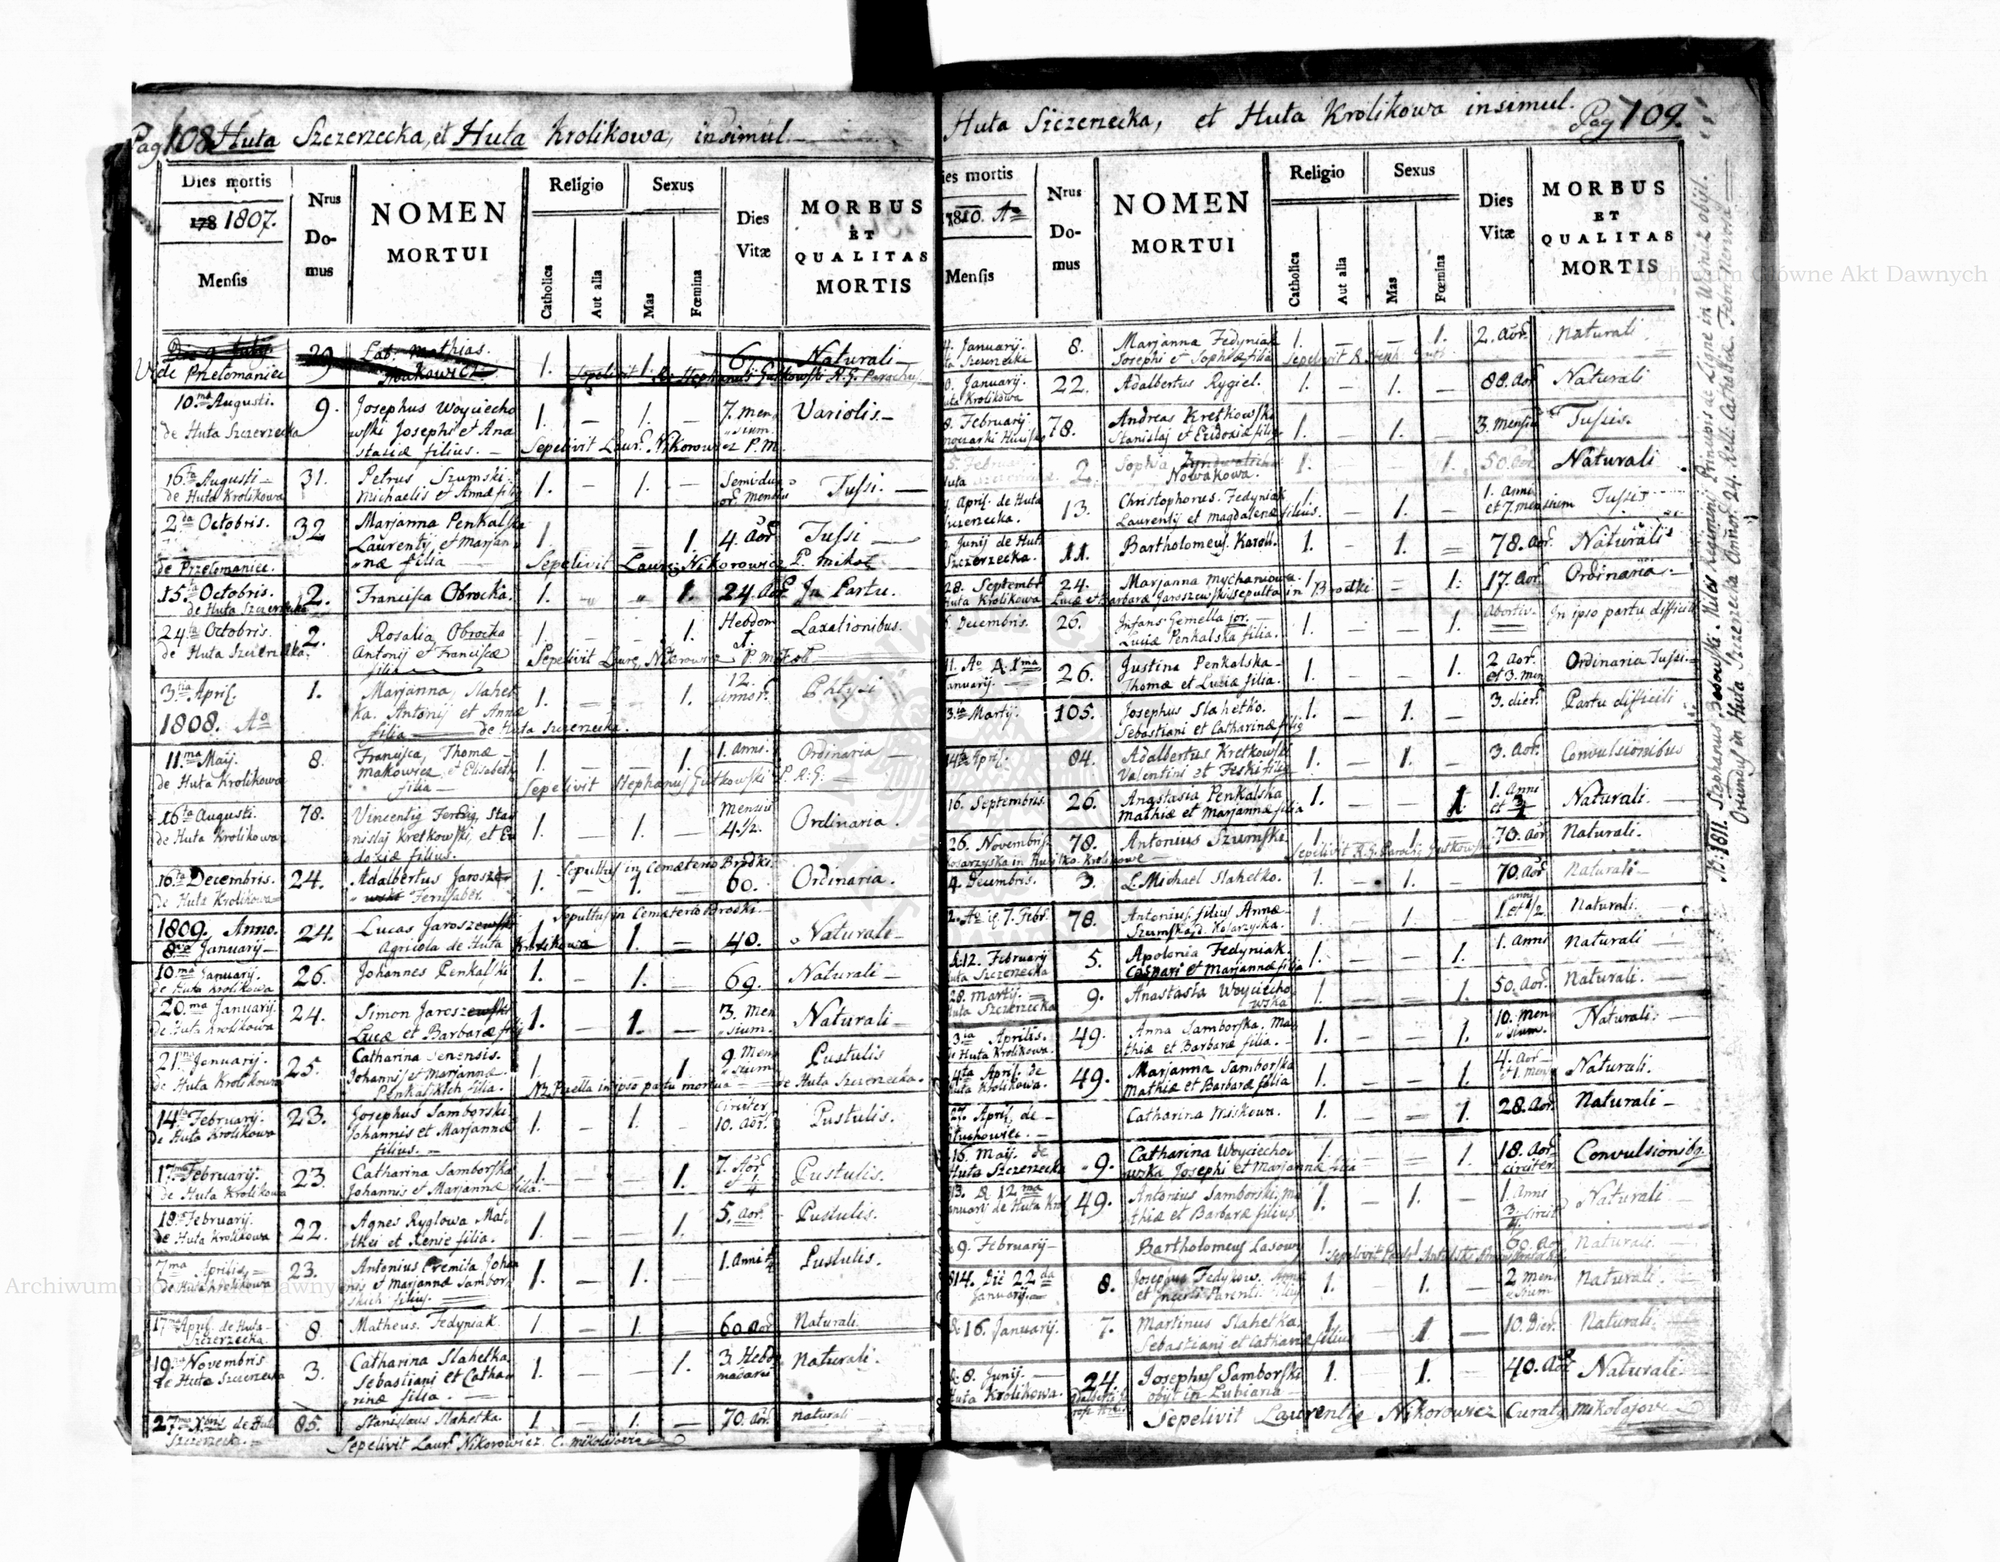 Pag 108 Huta Szczerzecka, et Huta Krolikowa, insimul.
Dies mortis
178 1807.
Mensis
Nrus Domus
NOMEN
MORTUI
Religio
Catholica
Aut alia
Sexus
Mas
Fœmina
Dies Vitæ
MORBUS
ET
QUALITAS
MORTIS
de Przelomaniec 29 Lab. Mathias 1. 1. 6 Naturali
Makowicz Sepelivit Stephanus Gutkowski R.G. Parochus
10.ma Augusti. 9. Josephus Woyciecho 1. — 1. — 7. Men Variolis —
de Huta Szczerzecka wski Josephi et Ana sium.
stasiæ filius. — Sepelivit Laur. Nikorowicz P.M.
16ta Augusti — 31. Petrus Szumski 1. — 1. — Semi duo Tussi. —
de Huta Krolikowa Michaelis et Annæ filius
2da Octobris. 32 Marjanna Penkalska 1. — — 1. 4. aor. Tussi —
Laurentij et Marjan
de Przelomaniec. næ filia Sepelivit Laur. Nikorowicz P. Mikol
15ta Octobris. 2. Francisca Obrocka. 1. " " 1. 24. aor. In Partu.
de Huta Szczerzecka
24ta Octobris 2. Rosalia Obrocka 1. — — 1. Hebdom Laxationibus.
de Huta Szczerzecka. Antonij et Franciscæ
filia Sepelivit Laur. Nikorowicz P. Mikol
3tia April. 1. Marjanna, Slahet 1. — — 1. 12. annor. Phtysi
1808. Ao ka. Antonij et Annæ
filia — de Huta Szczerzecka.
11ma Maij. 8. Francisca, Thomæ 1. — — 1. 1. Anni. Ordinaria
de Huta Krolikowa Makowicz et Elisabeth
filia — Sepelivit Stephanus Gutkowski P. R. G.
16ta Augusti. 78. Vincentig Ferdig, Sta 1. — 1. — Mensiu 4.1/2. Ordinaria.
de Huta Krolikowa nislaj Kretkowski, et Eu
doxiæ filius.
16ta Decembris. 24. Adalbertus Jarosze 1. — 1. — 60. Ordinaria.
de Huta Krolikowa wski Fernfaber. Sepultus in Cæmeterio Brodki.
1809. Anno. 24. Lucas Jaroszewski 1. — 1. — 40. Naturali —
8va Januarij — Agricola de Huta Krolikowa Sepultus in Cæmeterio Brodki.
10ma Januarij. 26. Johannes Penkalski 1. — 1. — 69. Naturali —
de Huta Krolikowa
20.ma Januarij. 24. Simon Jaroszewski 1. — 1. — 3. Men Naturali —
de Huta Krolikowa Lucæ et Barbaræ filius sium.
21ma Januarij. 25. Catharina Senensis. 1. — — 1. 9. Men Pustulis
de Huta Krolikowa Johannis et Marjannæ sium
Penkalskich filia. NB Puella in ipso partu mortua — de Huta Szczerzecka.
14ta Februarij. 23. Josephus Samborski 1. — 1. circiter 10. aor. Pustulis.
de Huta Krolikowa Johannis et Marjannæ
filius. —
17ma Februarij. 23. Catharina Samborska 1. — — 1. 7. aor. Pustulis.
de Huta Krolikowa Johannis et Marjannæ filia.
18. Februarij. 22. Agnes Ryglowa Mat 1. — — 1. 5. aor. Pustulis.
de Huta Krolikowa thei et Xenie filia.
7ma Aprilis 23. Antonius Eremita Joha 1. — 1. — 1. Anni Pustulis.
de Huta Krolikowa nis et Marjannæ Sambor
skich filius.
17ma April. de Huta 8. Matheus. Fedyniak 1. — 1. — 60 aor. Naturali.
Szczerzecka.
19. Novembris 3. Catharina Slahetka 1. — — 1. 3. Hebdo Naturali.
de Huta Szczerzecka Sebastiani et Catha madarum
rinæ filia.
27ma Xbris de Huta 85. Stanislaus Slahetka. 1. — 1. — 70. aor. Naturali
Szczerzecka.
Sepelivit Laur. Nikorowicz. C. Mikolajovie
Huta Szczerzecka, et Huta Krolikowa insimul. Pag 109.
ies mortis
1810. Ao
Mensis
Nrus Domus
NOMEN
MORTUI
Religio
Catholica
Aut alia
Sexus
Mas
Fœmina
Dies Vitæ
MORBUS
ET
QUALITAS
MORTIS
Januarij. 8. Marjanna Fedyniak 1. — — 1. 2. aor. Naturali
ta Szczerzecka Josephi et Sophiæ filia
Januarij. 22. Adalbertus Rygiel. 1. — 1. — 88. aor Naturali
uta Krolikowa
8. Februarij 78. Andreas Kretkowski 1. — 1. — 3. mensiu Tussis.
Stanislaj et Eudoxiæ filiu
2. Sophia 1. 1. 50. aor. Naturali
Nowakowa.
April. de Huta 13. Christophorus. Fedyniak 1. — 1. — 1. Anni Tussis
Szczerzecka. Laurentij et Magdalenæ filius. et 7. mensium
Junij de Hut 11. Bartholomeus. Karoll. 1. — 1. — 78. aor. Naturali
Szczerzecka.
28. Septembr 24. Marjanna Mychaniowa. 1. — 1. 17. aor. Ordinaria.
Huta Krolikowa Lucæ et Barbaræ Jaroszewski sepulta in Brodki
Decembris. 26. Infans Gemella jor. 1. — — 1. Abortiv. In ipso partu difficili
Luciæ Penkalska filia.
11. Ao A. 1ma 26. Justina Penkalska 1. — — 1. 2 aor. Ordinaria Tussi.
anuarij. — Thomæ et Luciæ filia. et 3. men
3.ia Martij. 105. Josephus Slahetko. 1. — 1. — 3. dier. Partu difficili
Sebastiani et Catharinæ filiq
14ta April. 84. Adalbertus Kretkowski 1. — 1. — 3. aor. Convulsionibus
Valentini et Feski filiq
16. Septembris. 26. Anastasia Penkalska 1. — — 1. 1. Anni Naturali.
Mathiæ et Marjannæ filia et 3/4
26. Novembris 78. Antonius Szumski. 1. 1. — 70. aor. Naturali.
Sepelivit R.G. Paroch Gutkowski
4. Decembris. 3. L. Michael Slahetko. 1. — 1. — 70. aor Naturali —
2. Ao 7. Febr. 78. Antonius filius Annæ 1. — 1. — 1. anni et 1/2 Naturali.
Szumska, d. Kosarzyska.
12. Februarij 5. Apolonia Fedyniak 1. — — 1. 1. Anni Naturali
uta Szczerzecka Caspari et Marjannæ filia
28. Martij. 9. Anastasia Woyciecho 1. — — 1. 50. aor. Naturali.
uta Szczerzecka wska
3tia Aprilis. 49. Anna Samborska. Ma 1. — — 1. 10. Men Naturali.
Huta Krolikowa. thiæ et Barbaræ filia. sium.
4ta April. de 49. Marjanna Samborska 1. — — 1. 4. aor — Naturali.
uta Krolikowa. Mathiæ et Barbaræ filia et 1. Mens
27. April. de — Catharina Miskowa. 1. — — 1. 28. aor. Naturali —
Gluchowiec. —
16. Maij. de 9. Catharina Woyciecho 1. — — 1. 18. aor. Convulsionibq.
Huta Szczerzecka wska Josephi et Marjannæ filia circiter
13. A 12ma 49. Antonius Samborski, Ma 1. — 1. — 1. Anni Naturali —
anuarij de Huta Krol thiæ et Barbaræ filius. 3/4 circit
9. Februarij — Bartholomeus Lasowy 1. 1. 60. aor Naturali.
814. Die 22da 8. Josephus Fedykows. 1. 1. — 2 men Naturali
Januarij. — sium
16. Januarij. 7. Martinus Slahetka 1. — 1. — 10. Dier. Naturali
Sebastianij et Catharinæ filius
8. Junij. 24. Josephus Samborski 1. 1. — 40. aor Naturali
Huta Krolikowa. obijt in Lubiana
Sepelivit Laurentig Nikorowicz Curatq Mikolajove
Ao 1811. Stephanus Bosowski. Miles Regiminis Principis de Ligne in Wisnicz obijt.
Oriundus in Huta Szczerzecka annor. 24. Relt. Catholicæ. Febri Nervosa
Archiwum Główne Akt Dawnych
Archiwum Główne Akt Dawnych